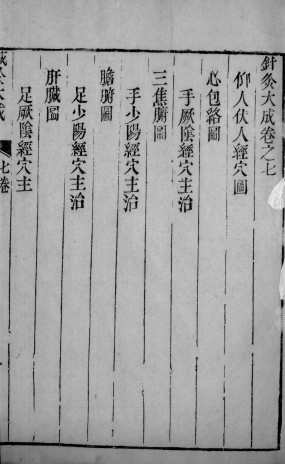 針灸大成卷之七
仰人伏人經穴圖
心包絡圖
手厥陰經穴主治
三焦腑圖
手少陽經穴主治
膽腑圖
足少陽經穴主治
肝臟圖
足厥陰經穴主
七卷